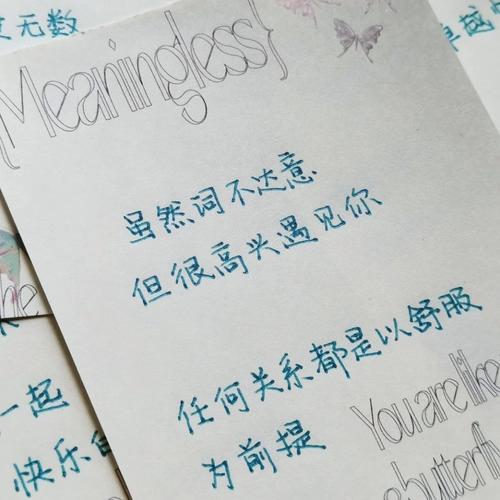 无数
{Meaningless}
虽然词不达意
但很高兴遇见你
任何关系都是以舒服
为前提
You are like
butterfly
一起
快乐的